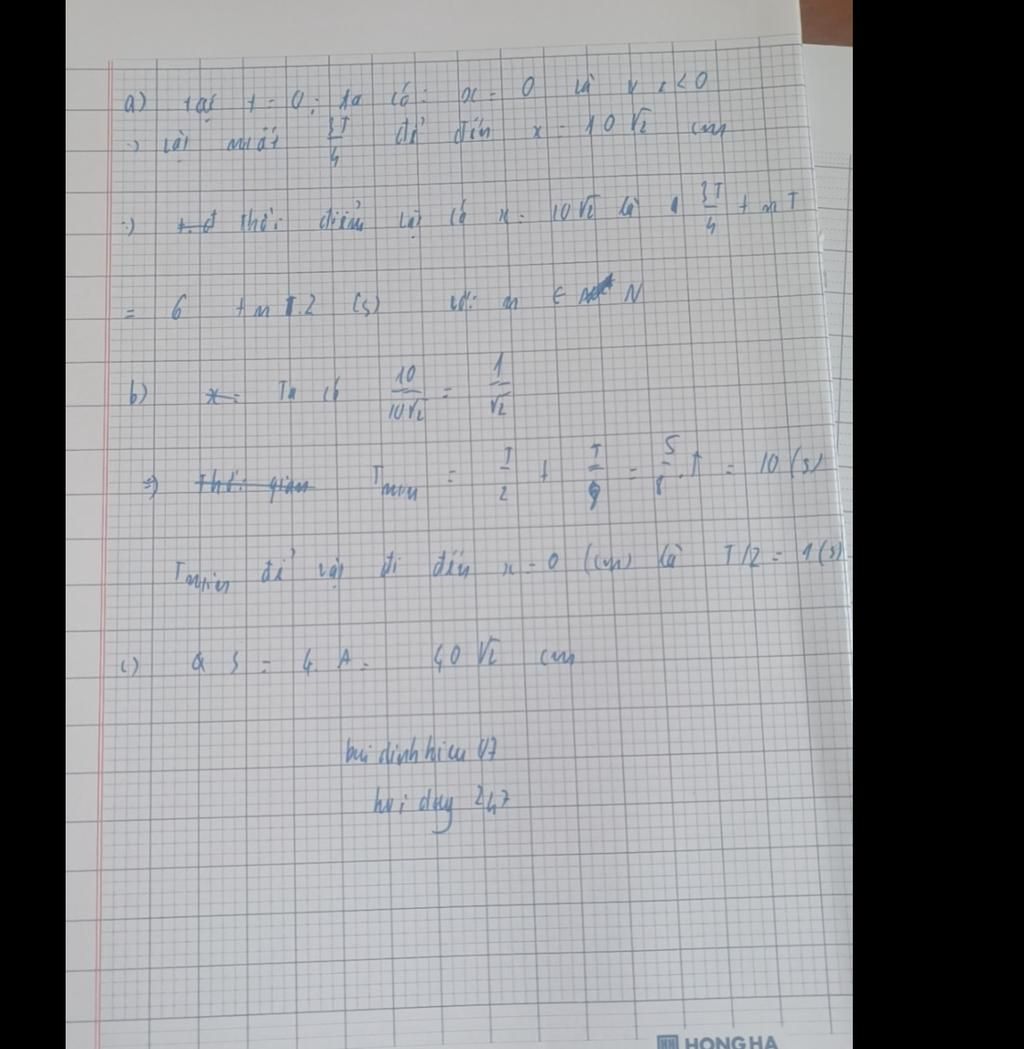 a) tại t = 0; ta có: x = 0 và v < 0
=> vật mất 3T/4 để đến x = 10√2 cm
=> thời điểm vật có x = 10√2 là 3T/4 + nT
= 6 + n T.2 (s) với n ∈ N
b) x = Ta có 10/10√2 = 1/√2
=> thời gian Tmin = T/2 + T/8 = 5/8 . T = 10 (s)
để vật đi đến x = 0 (cm) là T/2 = 1 (s)
c) S = 4. A = 40√2 cm
bui dinh hieu 07
hoi day 247
HONG HA